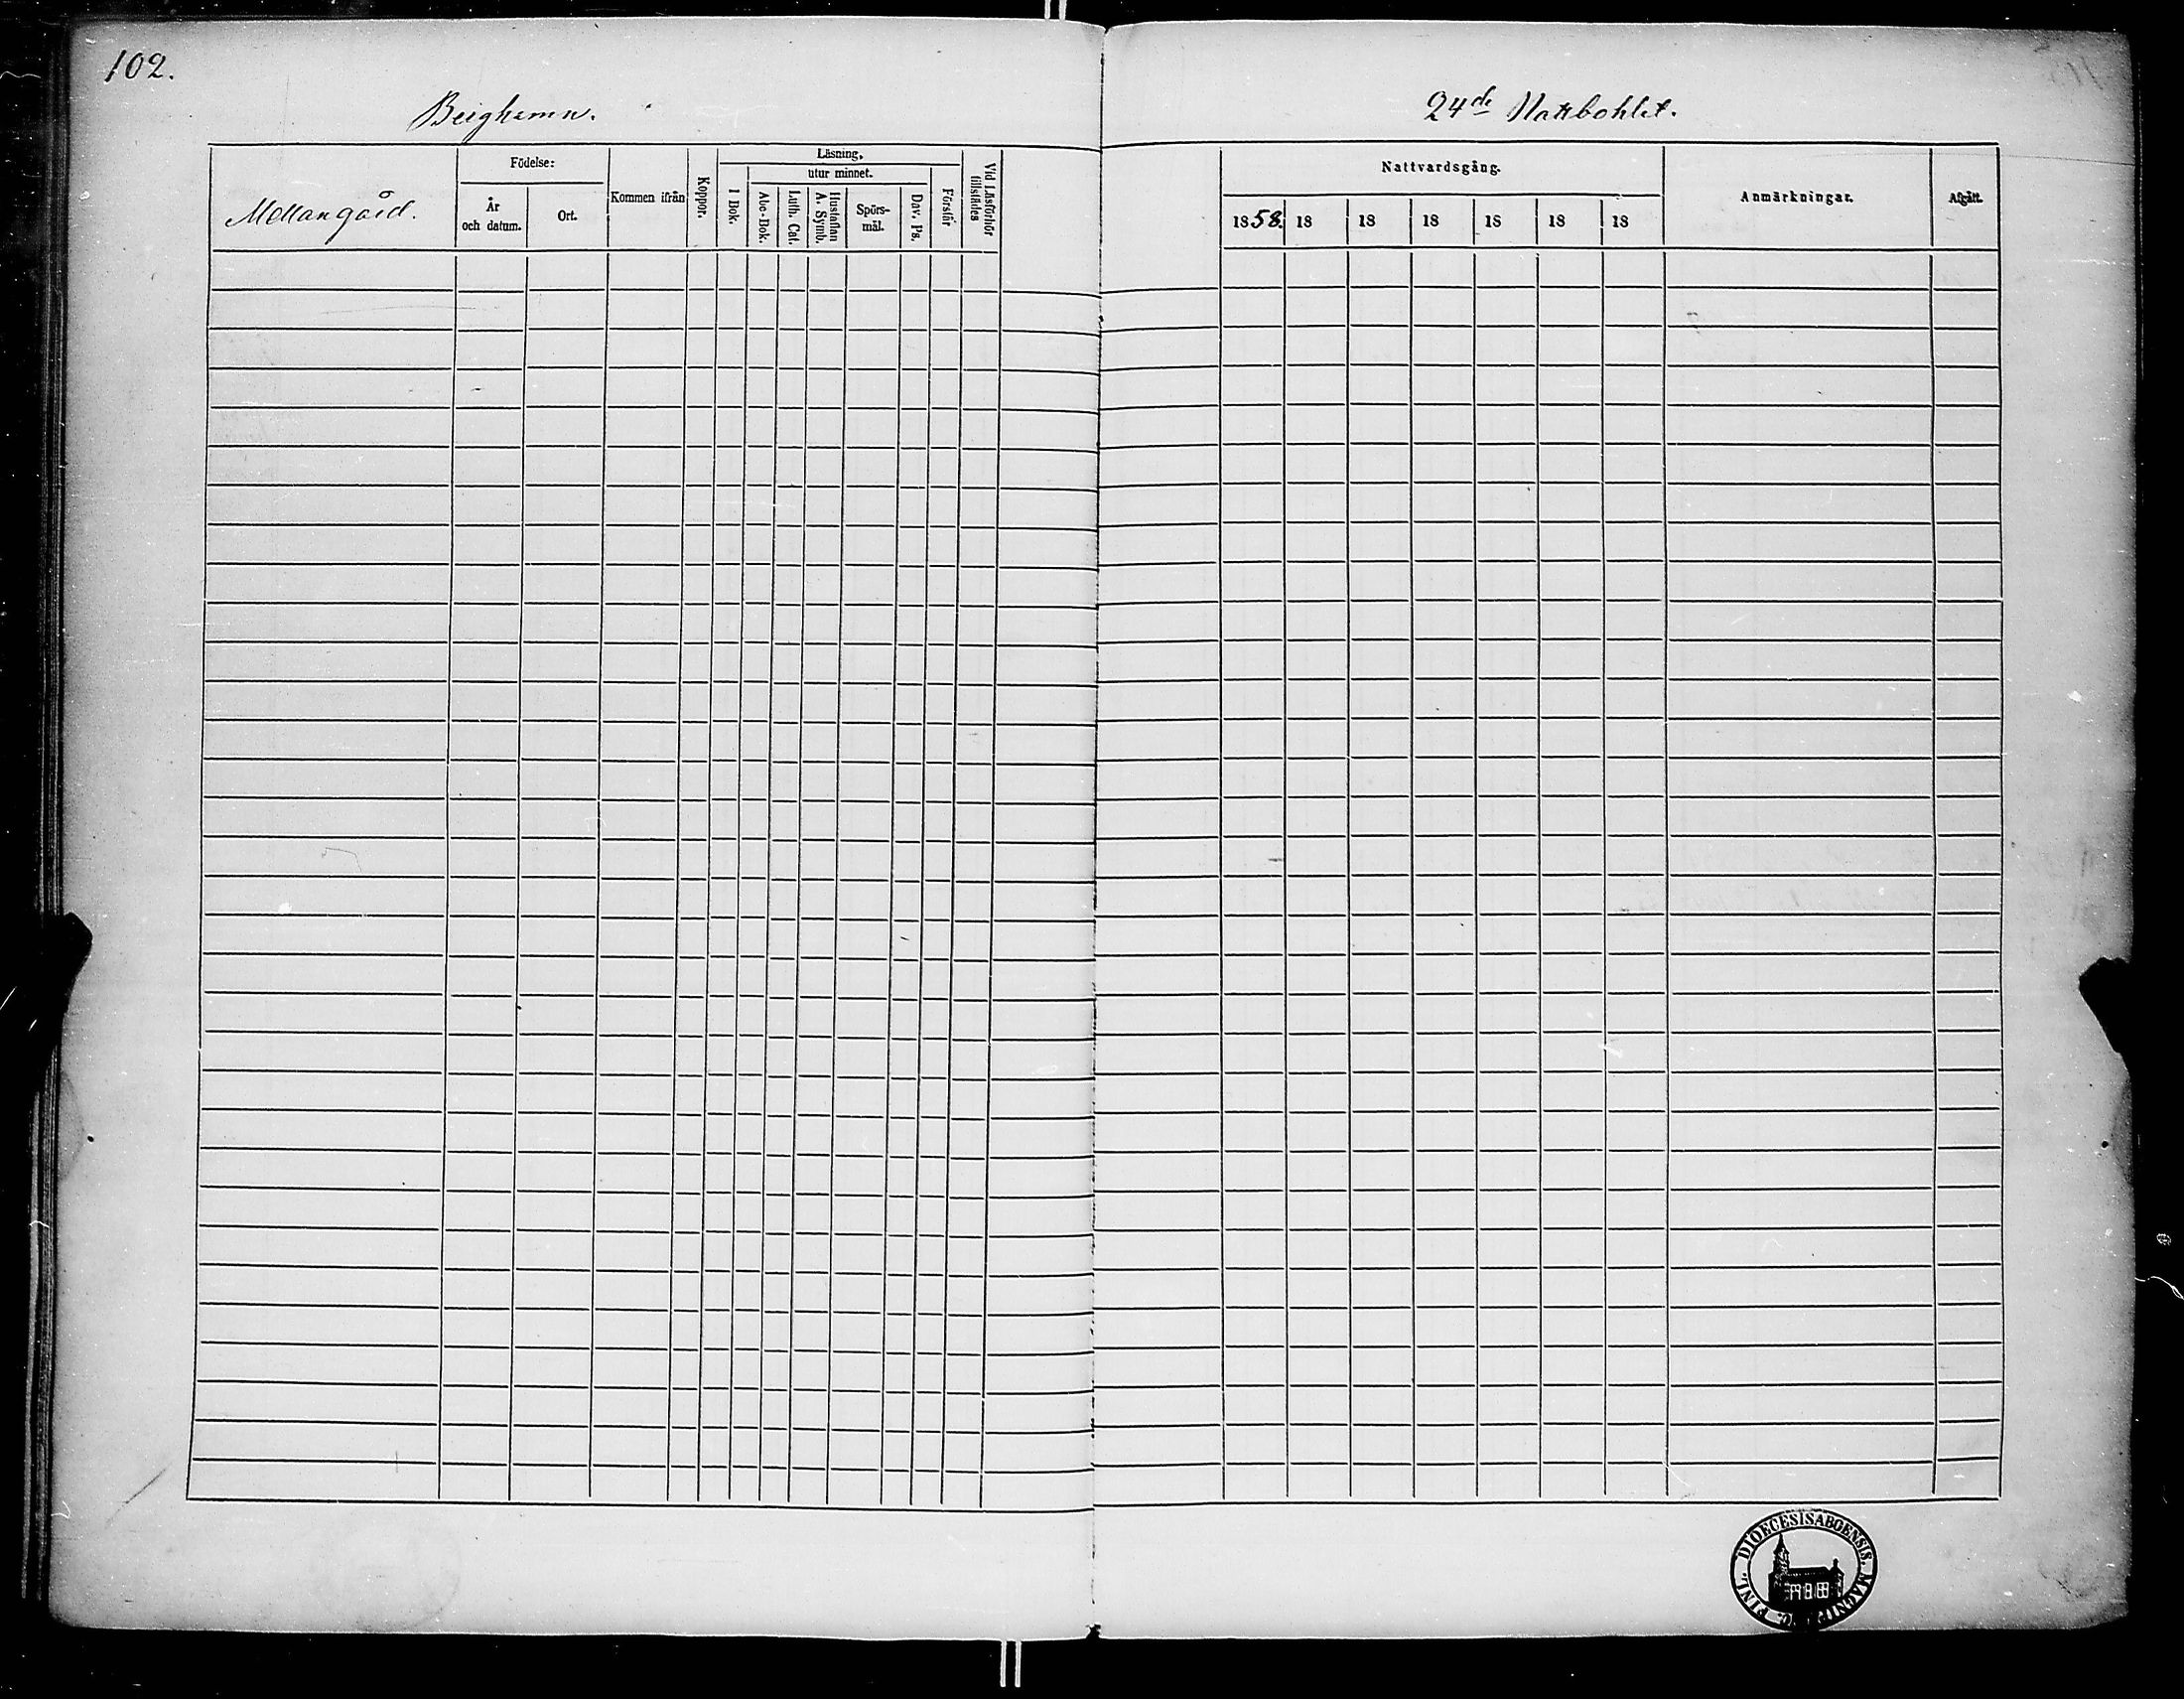 102.
Berghamn.
24de Matrbohlet.
Mellangård.
Födelse:
År
och datum.
Ort.
Kommen ifrån
Koppor.
Läsning,
utur minnet.
I Bok.
Abc-Bok.
Luth. Cat.
Hustaflan
A. Symb.
Spörs-
mål.
Dav. Ps.
Förstår
Vid Läsförhör
tillstädes
Nattvardsgång.
1858. 18 18 18 18 18 18
Anmärkningar.
Afgått.
DIOECESIS ABOENSIS. MAGNI FINL.